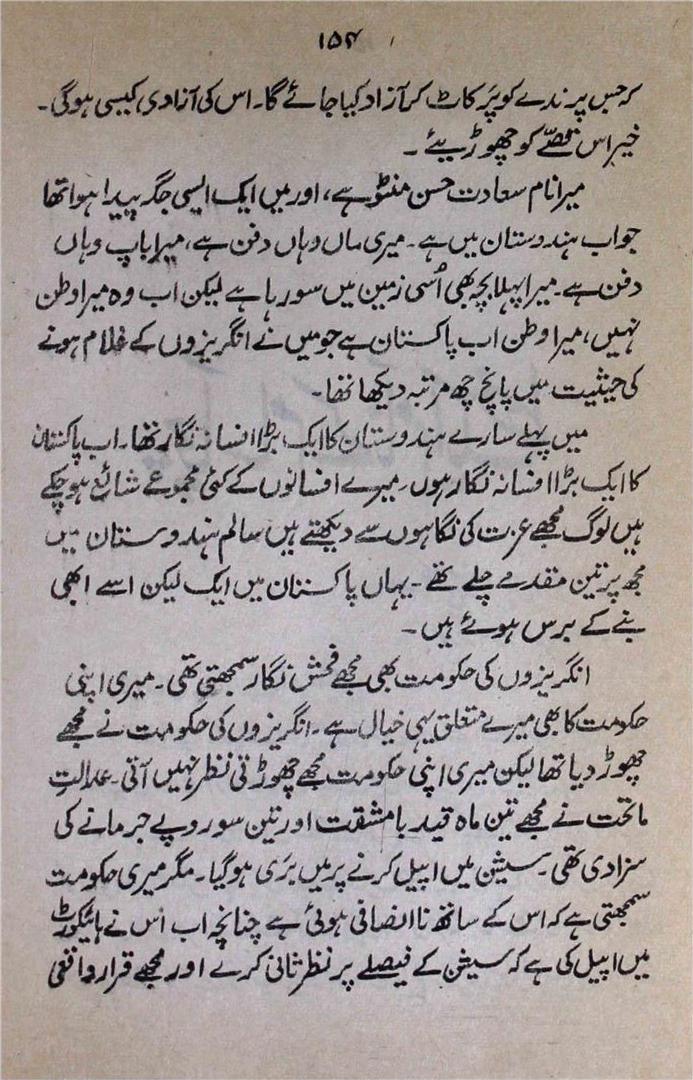 ۱۵۴
کہ جس پرندے کو پَر کاٹ کر آزاد کیا جائے گا۔ اس کی آزادی کیسی ہوگی۔
خیر اس قصّے کو چھوڑیئے ۔
میرا نام سعادت حسن منٹو ہے، اور میں ایک ایسی جگہ پیدا ہوا تھا
جو اب ہندوستان میں ہے۔ میری ماں وہاں دفن ہے، میرا باپ وہاں
دفن ہے۔ میرا پہلا بچہ بھی اُسی زمین میں سو رہا ہے لیکن اب وہ میرا وطن
نہیں، میرا وطن اب پاکستان ہے جو میں نے انگریزوں کے غلام ہونے
کی حیثیت میں پانچ چھ مرتبہ دیکھا تھا۔
میں پہلے سارے ہندوستان کا ایک بڑا افسانہ نگار تھا۔ اب پاکستان
کا ایک بڑا افسانہ نگار ہوں۔ میرے افسانوں کے کئی مجموعے شائع ہو چکے
ہیں لوگ مجھے عزت کی نگاہوں سے دیکھتے ہیں سالم ہندوستان میں
مجھ پر تین مقدمے چلے تھے۔ یہاں پاکستان میں ایک لیکن اسے ابھی
بنے کے برس ہوئے ہیں ۔
انگریزوں کی حکومت بھی مجھے فحش نگار سمجھتی تھی۔ میری اپنی
حکومت کا بھی میرے متعلق یہی خیال ہے۔ انگریزوں کی حکومت نے مجھے
چھوڑ دیا تھا لیکن میری اپنی حکومت مجھے چھوڑتی نظر نہیں آتی۔ عدالتِ
ماتحت نے مجھے تین ماہ قید بامشقت اور تین سو روپے جرمانے کی
سزا دی تھی۔ سیشن میں اپیل کرنے پر میں بَری ہوگیا۔ مگر میری حکومت
سمجھتی ہے کہ اس کے ساتھ ناانصافی ہوئی ہے چنانچہ اب اس نے ہائیکورٹ
میں اپیل کی ہے کہ سیشن کے فیصلے پر نظرثانی کرے اور مجھے قرار واقعی